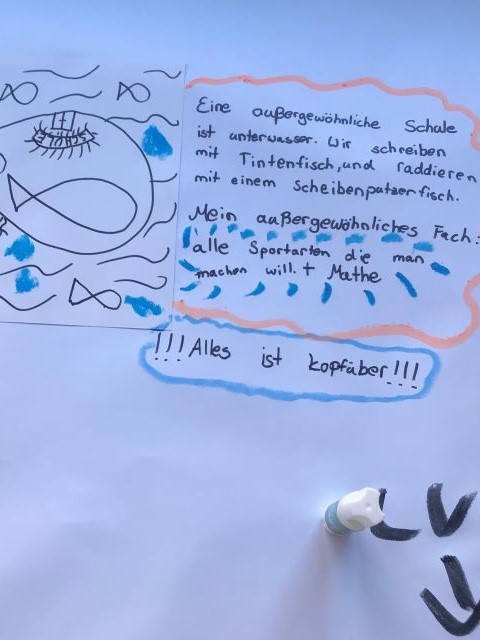 Eine außergewöhnliche Schule
ist unterwasser. Wir schreiben
mit Tintenfisch, und raddieren
mit einem Scheibenputzerfisch.
Mein außergewöhnliches Fach:
alle Sportarten die man
machen will. + Mathe
!!! Alles ist kopfüber!!!